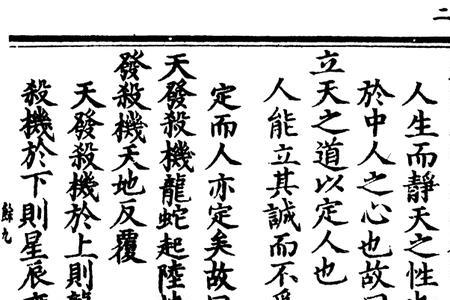 二
人生而靜天之性
於中人之心也故
立天之道以定人也
人能立其誠而不
定而人亦定矣故
天發殺機龍蛇起陸
發殺機天地反覆
天發殺機於上則龍
殺機於下則星辰
餘九